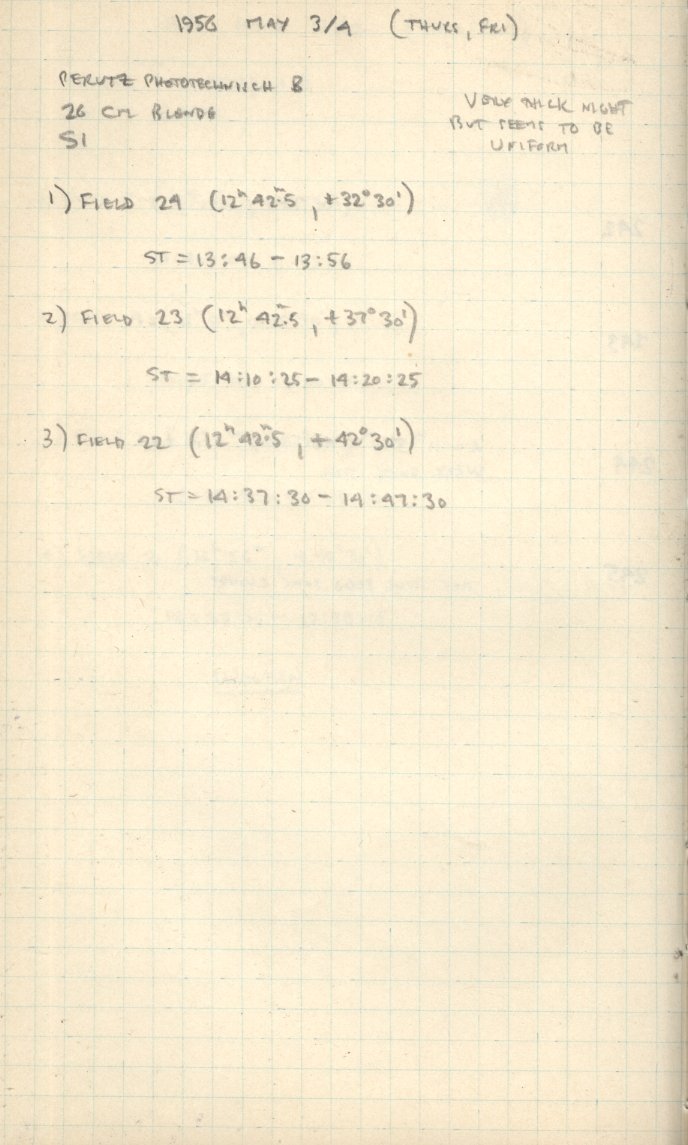 1956 MAY 3/4 (THURS, FRI)
PERUTZ PHOTOTECHNISCH B
26 CM BLENDE
S1
VERY THICK NIGHT
BUT SEEMS TO BE
UNIFORM
1) FIELD 24 (12ʰ 42ᵐ.5, +32° 30')
ST = 13:46 - 13:56
2) FIELD 23 (12ʰ 42ᵐ.5, +37° 30')
ST = 14:10:25 - 14:20:25
3) FIELD 22 (12ʰ 42ᵐ.5, +42° 30')
ST = 14:37:30 - 14:47:30